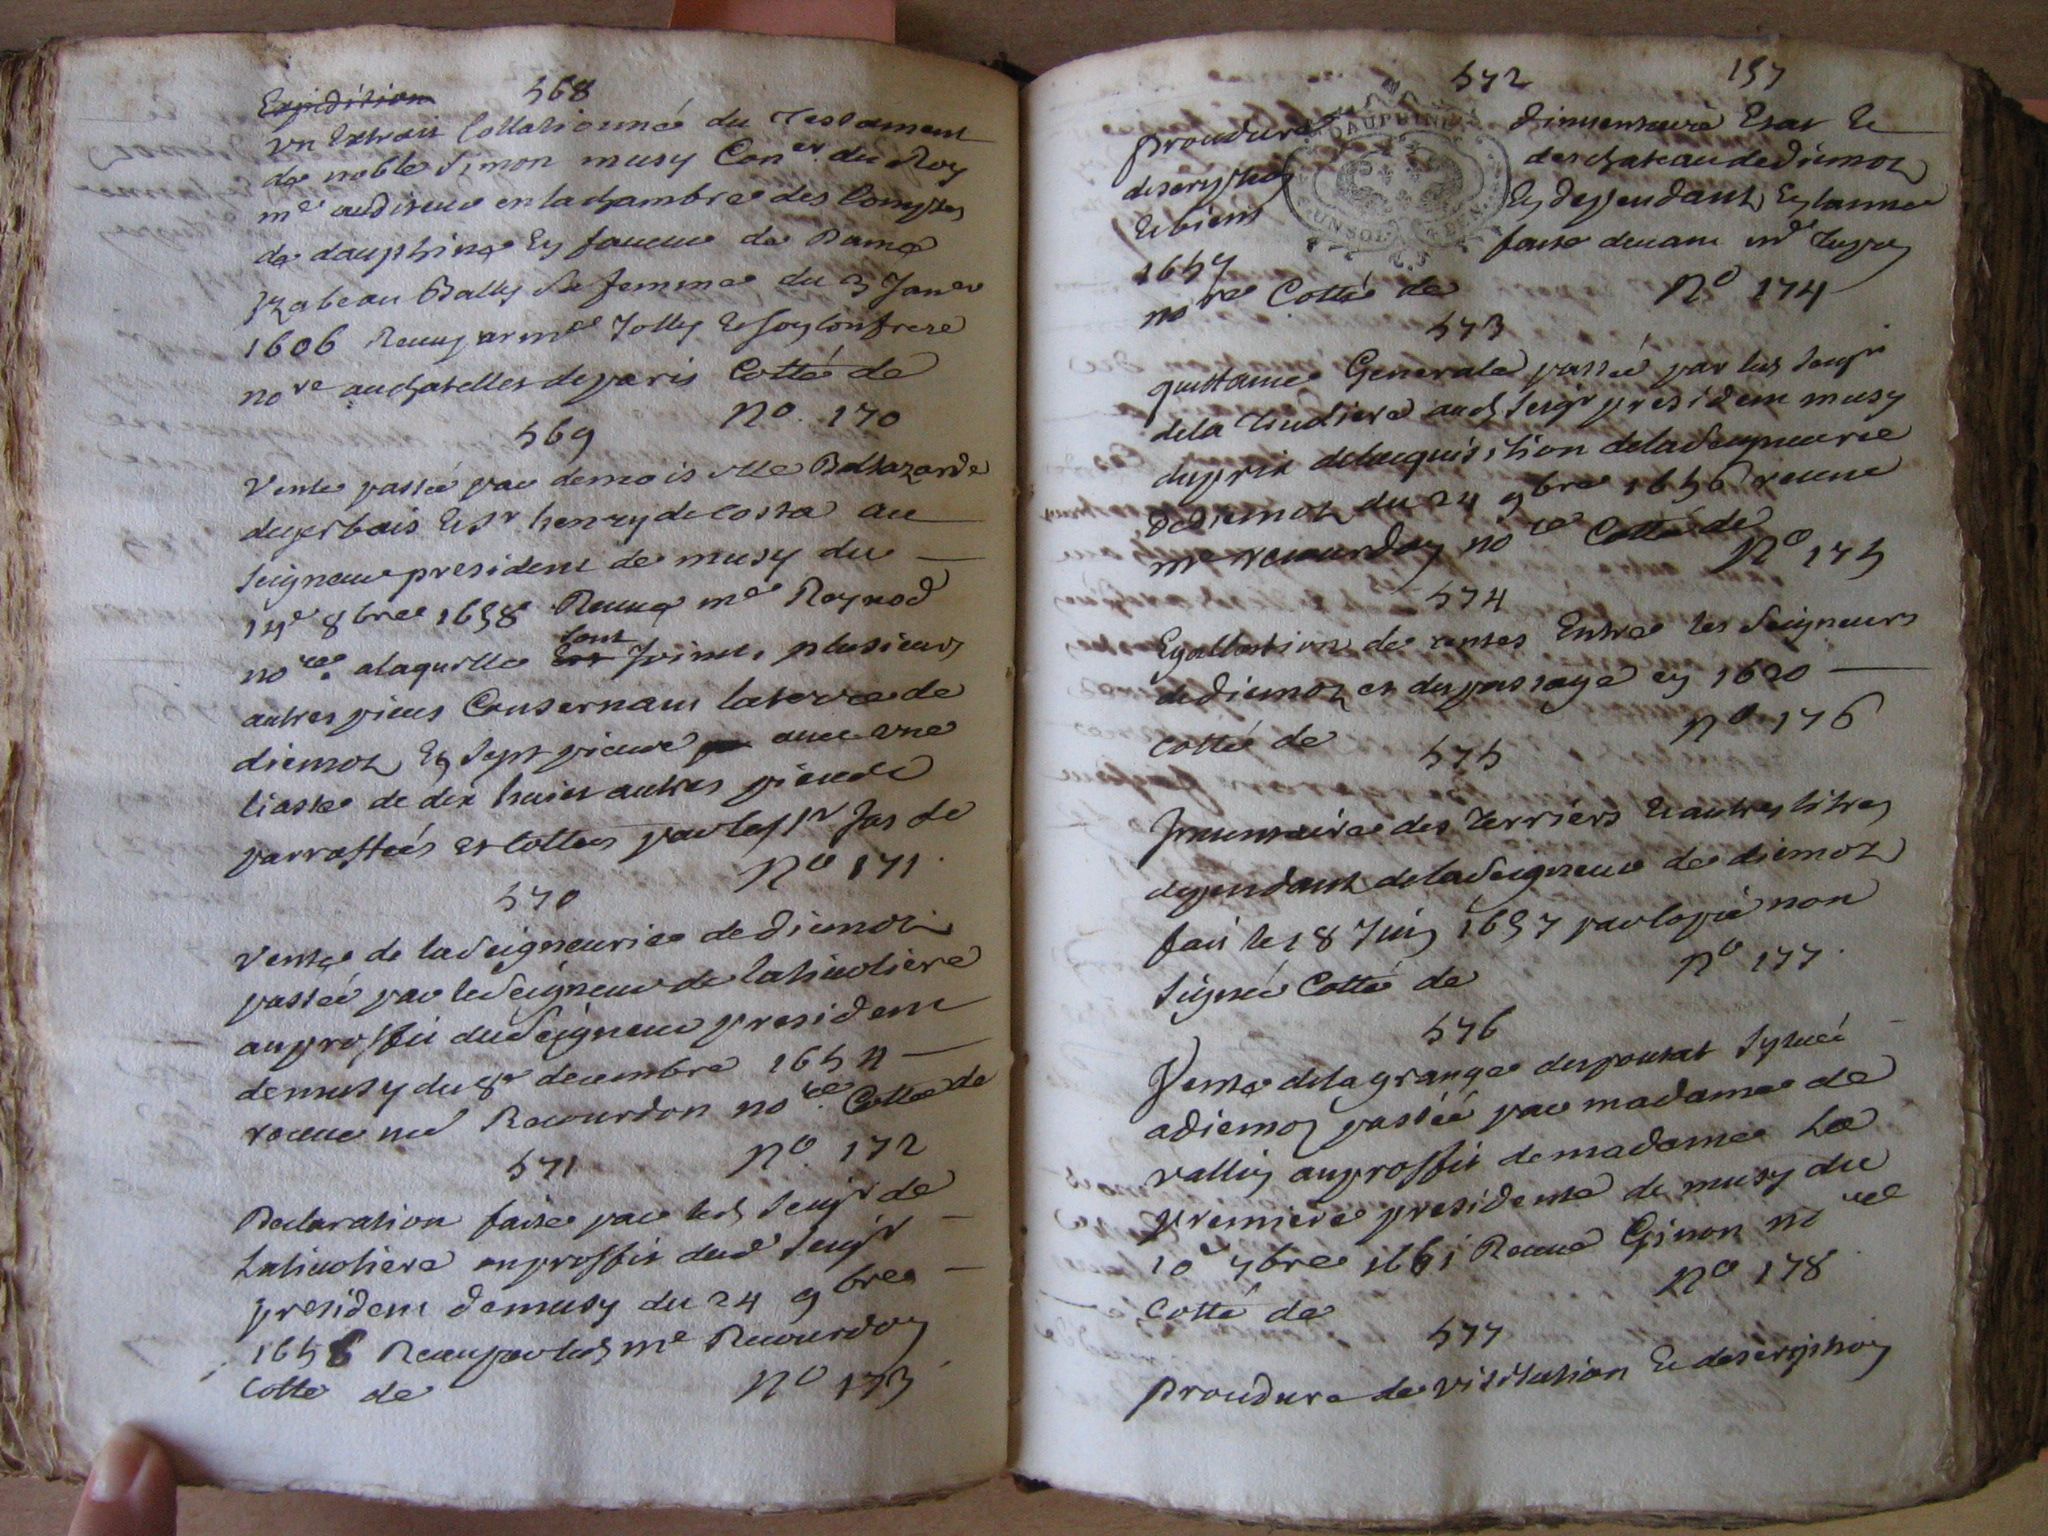 568
Expedition
vn Extrait Collationné du Testament
de noble Simon musy Con.er du Roy
me auditeur en la chambre des Comptes
de dauphiné En faueur de Dame
Izabeau Bally sa femme du 3 Janer
1606 Receu par me Jolly Et son confrere
no.re au chatellet de paris Cotté de
No. 170
569
Vente passée par demoiselle Baltazarde
Et Sr henry de Costa au
seigneur president de musy du
8bre 1658 Receue me Raynod
no.re alaquelle sont Jointes plusieurs
autres pieces Consernant laterre de
diemoz En sept pieces auec vne
liasse de dix huict autres pieces
parraffées et cottées par led Sr Jas de
No 171
570
Vente de la Seigneurie de diemoz
passée par le Seigneur de latiuoliere
au proffit du Seigneur president
de musy du 8e decembre 165
receue me Recourdon no.re Cottée de
No. 172
571
Declaration faite par led Seigr de
Latiuoliere au proffit dud Seigr
president de musy du 24 9bre
1656 Receu par led me Recourdon
Cotté de
No 173
572 157
procedure dinuentaire Estat Et
description des chateau de diemoz
Et biens En dependants En lannee
1657 faite deuant me
no.re Cotté de No 174
573
quittance Generale passée par led seigr
dela tiuoliere aud Seigr president musy
du prix delacquisition dela Seigneurie
de diemoz du 24 9bre 1656 receue
me recourdon no.re Cotté de
No 175
574
Egallation de rentes Entre les Seigneurs
de diemoz et du passage en 1620
Cotté de No 176
575
Inuentaire des terriers Et autres titres
dependants dela Seigneurie de diemoz
fait le 18 Juin 1657 par copie non
signée Cotté de No 177
576
Vente dela grange du pousat scituée
a diemoz passée par madame de
vallin au proffit de madame La
premiere presidente de musy du
10e 7bre 1661 Receue Ginon no.re
Cotté de No 178
577
procedure de visitation Et description
DAUPHINE
UN SOL